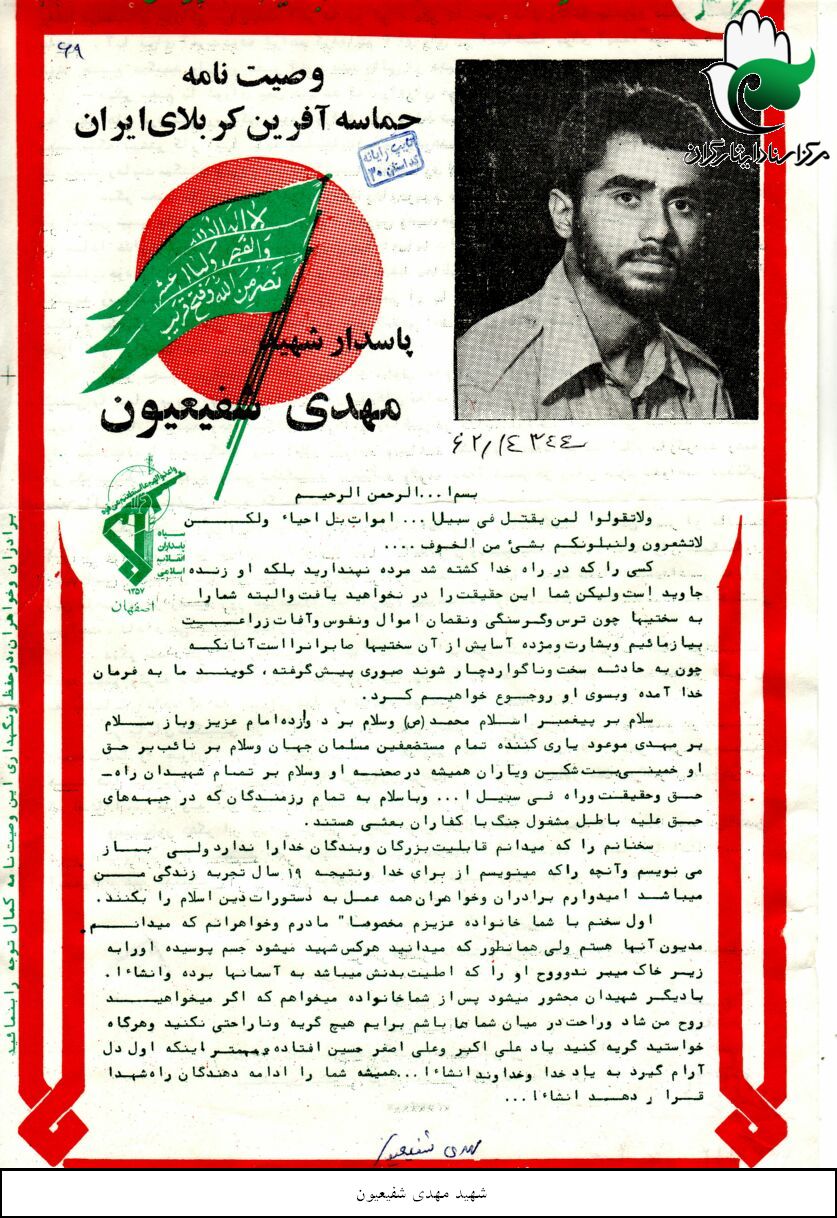 ۶۹
وصیت نامه
حماسه آفرین کربلای ایران
تایپ رایانه
کد استان ۳۰
مرکز اسناد ایثارگران
لا اله الا الله
والفجر ولیال عشر
نصر من الله وفتح قریب
پاسدار شهید
مهدی شفیعیون
سپاه
پاسداران
انقلاب
اسلامی
۱۳۵۷
اصفهان
بسم ا...الرحمن الرحیم
ولاتقولوا لمن یقتل فی سبیل ا... اموات بل احیاء ولکن
لاتشعرون ولنبلونکم بشئ من الخوف ....
کسی را که در راه خدا کشته شد مرده نپندارید بلکه او زنده
جاوید است ولیکن شما این حقیقت را در نخواهید یافت والبته شمارا
به سختیها چون ترس وگرسنگی ونقصان اموال ونفوس وآفات زراعت
بیازمائیم وبشارت ومژده آسایش از آن سختیها صابرانرا است آنانکه
چون به حادثه سخت وناگوار دچار شوند صبوری پیش گرفته ، گویند ما به فرمان
خدا آمده وبسوی او رجوع خواهیم کرد .
سلام بر پیغمبر اسلام محمد (ص) وسلام بر دوازده امام عزیز وباز سلام
بر مهدی موعود یاری کننده تمام مستضعفین مسلمان جهان وسلام بر نائب بر حق
او خمینی بت شکن ویاران همیشه در صحنه او وسلام بر تمام شهیدان راه
حق وحقیقت وراه فی سبیل ا... وباسلام به تمام رزمندگان که در جبهه های
حق علیه باطل مشغول جنگ با کفاران بعثی هستند .
سخنانم را که میدانم قابلیت بزرگان وبندگان خدارا ندارد ولی باز
می نویسم وآنچه راکه مینویسم از برای خدا ونتیجه ۱۹ سال تجربه زندگی من
میباشد امیدوارم برادران وخواهران همه عمل به دستورات دین اسلام را بکنند .
اول سخنم با شما خانواده عزیزم مخصوصا" مادرم وخواهرانم که میدانم
مدیون آنها هستم ولی همانطور که میدانید هرکس شهید میشود جسم پوسیده اورا به
زیر خاک میبرند وروح او را که اصلیت بدنش میباشد به آسمانها برده وانشاءا .
بادیگر شهیدان محشور میشود پس از شما خانواده میخواهم که اگر میخواهید
روح من شاد وراحت در میان شماها باشم برایم هیچ گریه وناراحتی نکنید وهرگاه
خواستید گریه کنید یاد علی اکبر وعلی اصغر حسین افتاده وبهتر اینکه اول دل
آرام گیرد به یاد خدا وخداوند انشاءا...همیشه شما را ادامه دهندگان راه شهدا
قرار دهد انشاءا ...
مهدی شفیعیون
برادران وخواهران،در حفظ ونگهداری این وصیت نامه کمال توجه را بنمائید
شهید مهدی شفیعیون